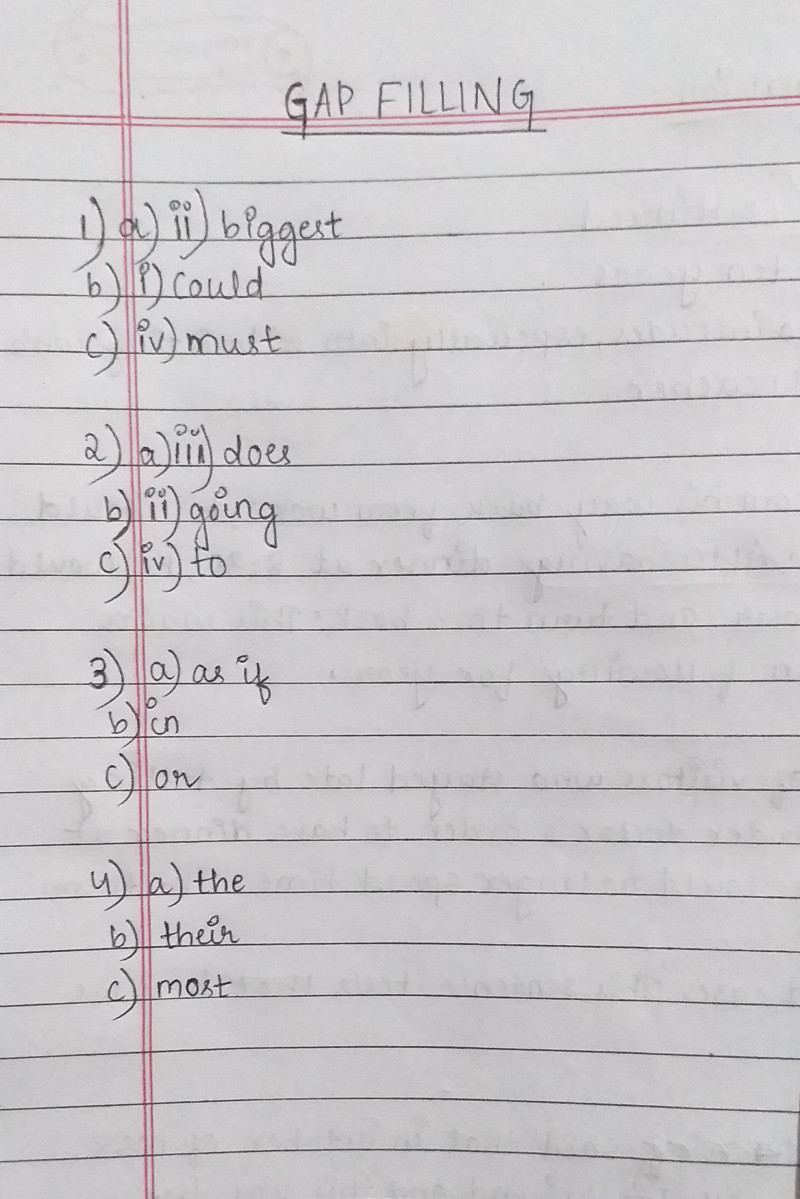 GAP FILLING
1) a) ii) biggest
b) i) could
c) iv) must
2) a) iii) does
b) ii) going
c) iv) to
3) a) as if
b) in
c) on
4) a) the
b) their
c) most